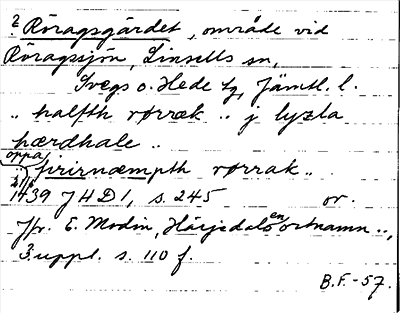 ? Röragsgärdet, område vid
Röragssjön, Linsells sn,
Svegs o. Hede tg, Jämtl. l.
.. halfth rørræk .. j lyzla
hærdhale ..
oppa
firirnæmpth rørrak ..
1439 JHD 1, s. 245 or.
Jfr. E. Modin, Härjedalens ortnamn ..,
3 uppl. s. 110 f.
B.F. -57.